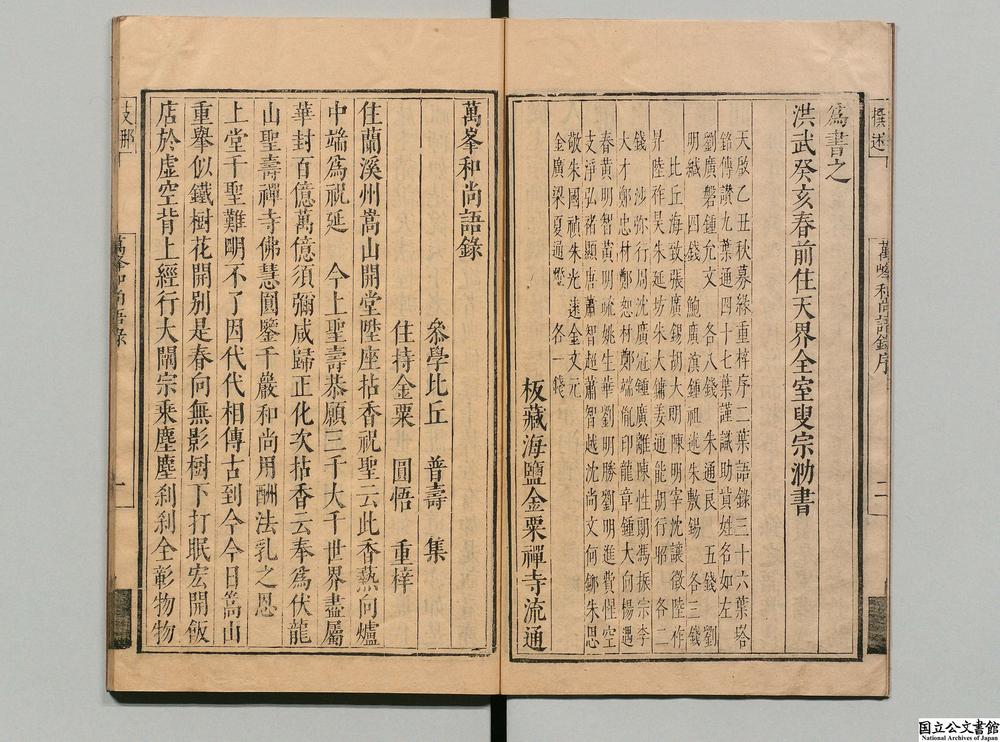 撰述
萬峰和尚語錄序
二
為書之
洪武癸亥春前住天界全室叟宗泐書
天啟乙丑秋募緣重梓序二葉語錄三十六葉塔
銘傳讚九葉通四十七葉謹識助貲姓名如左
劉廣磐鍾允文　各八錢　朱通艮　五錢　劉
明緘　四錢　鮑廣滇鍾祖述朱敷錫　各三錢
比丘海致張廣錫胡大朗陳明宰沈讓徵陸作
昇陸祚昊朱延坊朱大鏞姜通能胡行昭　各二
錢　沙弥行周沈廣冠鍾廣離陳性朗馮振宗李
大才鄭忠材鄭恕材鄭端胤印龍章鍾大向楊遇
春黃明智黃明疏姚生華劉明勝劉明進費惺空
支淨弘褚顯唐蕭智超蕭智越沈尚文何鄉朱思
敬朱國禎朱光遠金文元
金廣梁夏通鑒　各一錢
板藏海鹽金粟禪寺流通
萬峯和尚語錄
叅學比丘　普壽　集
住持金粟　圓悟　重梓
住蘭溪州嵩山開堂陞座拈香祝聖云此香爇向爐
中端為祝延　今上聖壽恭願三千大千世界盡屬
華封百億萬億須彌咸歸正化次拈香云奉為伏龍
山聖壽禪寺佛慧圓鑒千巖和尚用酬法乳之恩
上堂千聖難明不了因代代相傳古到今今日嵩山
重舉似鐵樹花開別是春向無影樹下打眠宏開飯
店於虛空背上經行大闡宗乘塵塵剎剎全彰物物
支那
萬峯和尚語錄
一
国立公文書館
National Archives of Japan